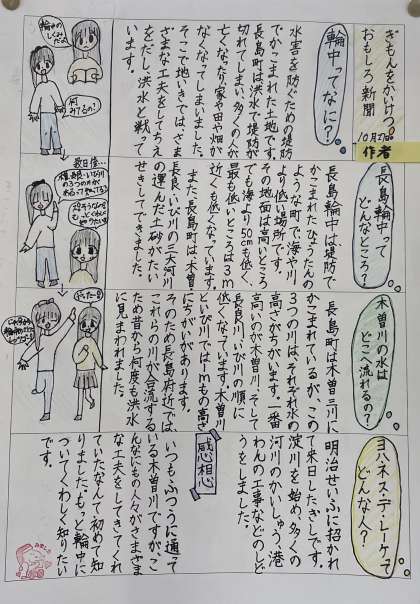 ぎもんをかいけつ
おもしろ新聞
10月27日
作者
輪中ってなに?
水害を防ぐための堤防
でかこまれた土地です。
長島町は洪水で堤防が
切れてしまい、多くの人が
亡くなったり家や田や畑が
なくなってしまいました。
そこで地いきでは、さま
ざまな工夫をしてちえ
をだし、洪水と戦って
います。
輪中の
しくみだよ
何
みてるの?
長島輪中って
どんなところ?
長島輪中は、堤防で
かこまれたひょうたんの
ような町で、海や川
より低い場所です。
その地面は高いところ
でも海より50cmも低く、
最も低いところは3m
近くも低くなっています。
また、長島町は木曽
長良、いび川の三大河川
の運んだ土砂がたい
せきしてできました。
数日後…
木曽川の水は
どこへ流れるの?
長島町は木曽三川に
かこまれているが、この
3つの川は、それぞれ水の
高さがちがいます。一番
高いのが木曽川、そして
長良川、いび川の順に
低くなっています。木曽川
といび川では1mもの高さ
にちがいがあります。
そのため長島付近では
これらの川が合流する
ため昔から何度も洪水
に見まわれました。
ヨハネス・デ・レーケって
どんな人?
明治せいふに招かれ
て来日したぎしです。
淀川を始め、多くの
河川のかいしゅう、港
わんの工事などのしど
うをしました。
感想
いつもふつうに通って
いる木曽川ですが、こ
んなにもの人々がさまざま
な工夫をしてきてくれ
ていたなんて初めて知
りました。もっと輪中に
ついてくわしく知りたい
です。